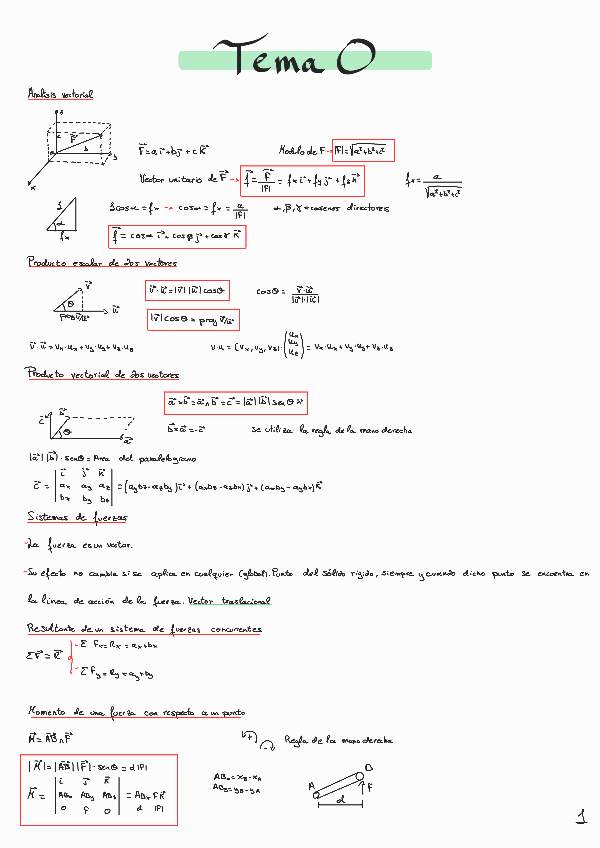 Tema 0
Análisis vectorial
F⃗ = a i⃗ + b j⃗ + c K⃗
Modulo de F → |F| = √(a²+b²+c²)
Vector unitario de F⃗ → f⃗ = F⃗/|F| = fx i⃗ + fy j⃗ + fz K⃗
fx = a/√(a²+b²+c²)
cosα = fx = a/|F|
α, β, γ = cosenos directores
f⃗ = cosα i⃗ + cosβ j⃗ + cosγ K⃗
Producto escalar de dos vectores
v⃗ · u⃗ = |v⃗| |u⃗| cosθ
cosθ = v⃗·u⃗ / |v⃗|·|u⃗|
|v⃗| cosθ = proy v⃗/u⃗
v⃗ · u⃗ = vx·ux + vy·uy + vz·uz
v·u = (vx, vy, vz) · (ux uy uz) = vx·ux + vy·uy + vz·uz
Producto vectorial de dos vectores
a⃗ × b⃗ = a⃗ ∧ b⃗ = c⃗ = |a⃗| |b⃗| sen θ
b⃗ × a⃗ = -c⃗
se utiliza la regla de la mano derecha
|a⃗| |b⃗| · senθ = Area del paralelogramo
i⃗ j⃗ K⃗
c⃗ = ax ay az
bx by bz
Sistemas de fuerzas
-La fuerza es un vector.
-Su efecto no cambia si se aplica en cualquier (global). Punto del sólido rígido, siempre y cuando dicho punto se encuentra en
la línea de acción de la fuerza. Vector traslacional
Resultante de un sistema de fuerzas concurrentes
ΣF⃗ = R⃗
Σ Fx = Rx = ax + bx
Σ Fy = Ry = ay + by
Momento de una fuerza con respecto a un punto
M⃗ = AB⃗ ∧ F⃗
Regla de la mano derecha
|M⃗| = |AB⃗| |F⃗| · senθ = d |F|
i⃗ j⃗ K⃗
M⃗ = ABx ABy ABz = ABx F K⃗
0 F 0 d |F|
ABx = xB - xA
ABy = yB - yA
A B F d
1